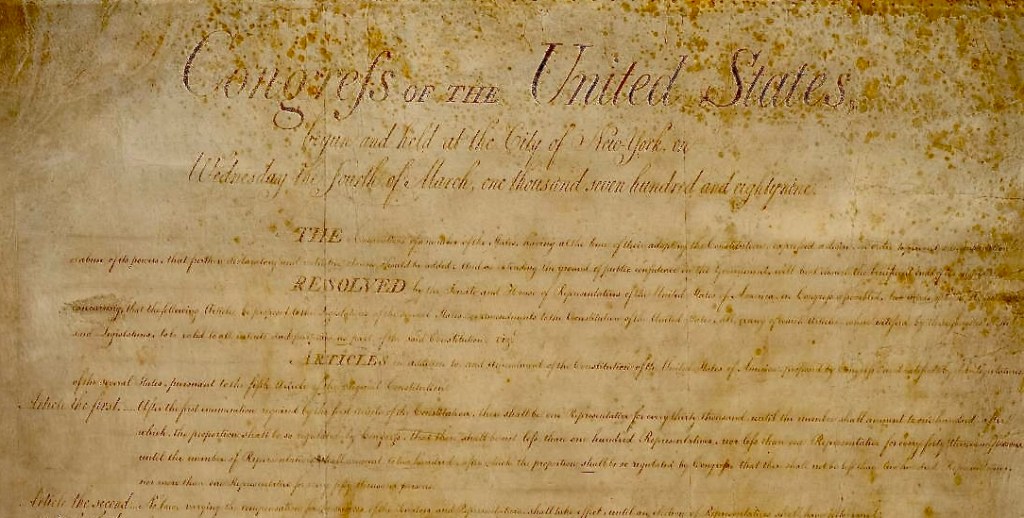 Congreſs OF THE United States,
begun and held at the City of New-York, on
Wednesday the fourth of March, one thousand seven hundred and eightynine.
THE Conventions of a number of the States, having at the time of their adopting the Constitution, expressed a desire, in order to prevent
abuse of its powers, that further declaratory and restrictive clauses should be added: And as extending the ground of public confidence in the Government, will best ensure the beneficent ends of
RESOLVED by the Senate and House of Representatives of the United States of America, in Congreſs aſsembled, two thirds of
concurring, that the following Articles be proposed to the Legislatures of the several States, as amendments to the Constitution of the United States, all, or any of which Articles, when ratified by three fourths of the
said Legislatures, to be valid to all intents and purposes, as part of the said Constitution; viz.
ARTICLES in addition to, and Amendment of the Constitution of the United States of America, proposed by Congreſs, and ratified by the Legislatures
of the several States, pursuant to the fifth Article of the original Constitution.
Article the first.... After the first enumeration required by the first Article of the Constitution, there shall be one Representative for every thirty thousand, until the number shall amount to one hundred, after
which, the proportion shall be so regulated by Congreſs, that there shall be not leſs than one hundred Representatives, nor leſs than one Representative for every forty thousand persons,
until the number of Representatives shall amount to two hundred, after which the proportion shall be so regulated by Congreſs, that there shall not be leſs than two hundred Representatives,
nor more than one Representative for every fifty thousand persons.
Article the second... No law, varying the compensation for the services of the Senators and Representatives, shall take effect, until an election of Representatives shall have intervened.